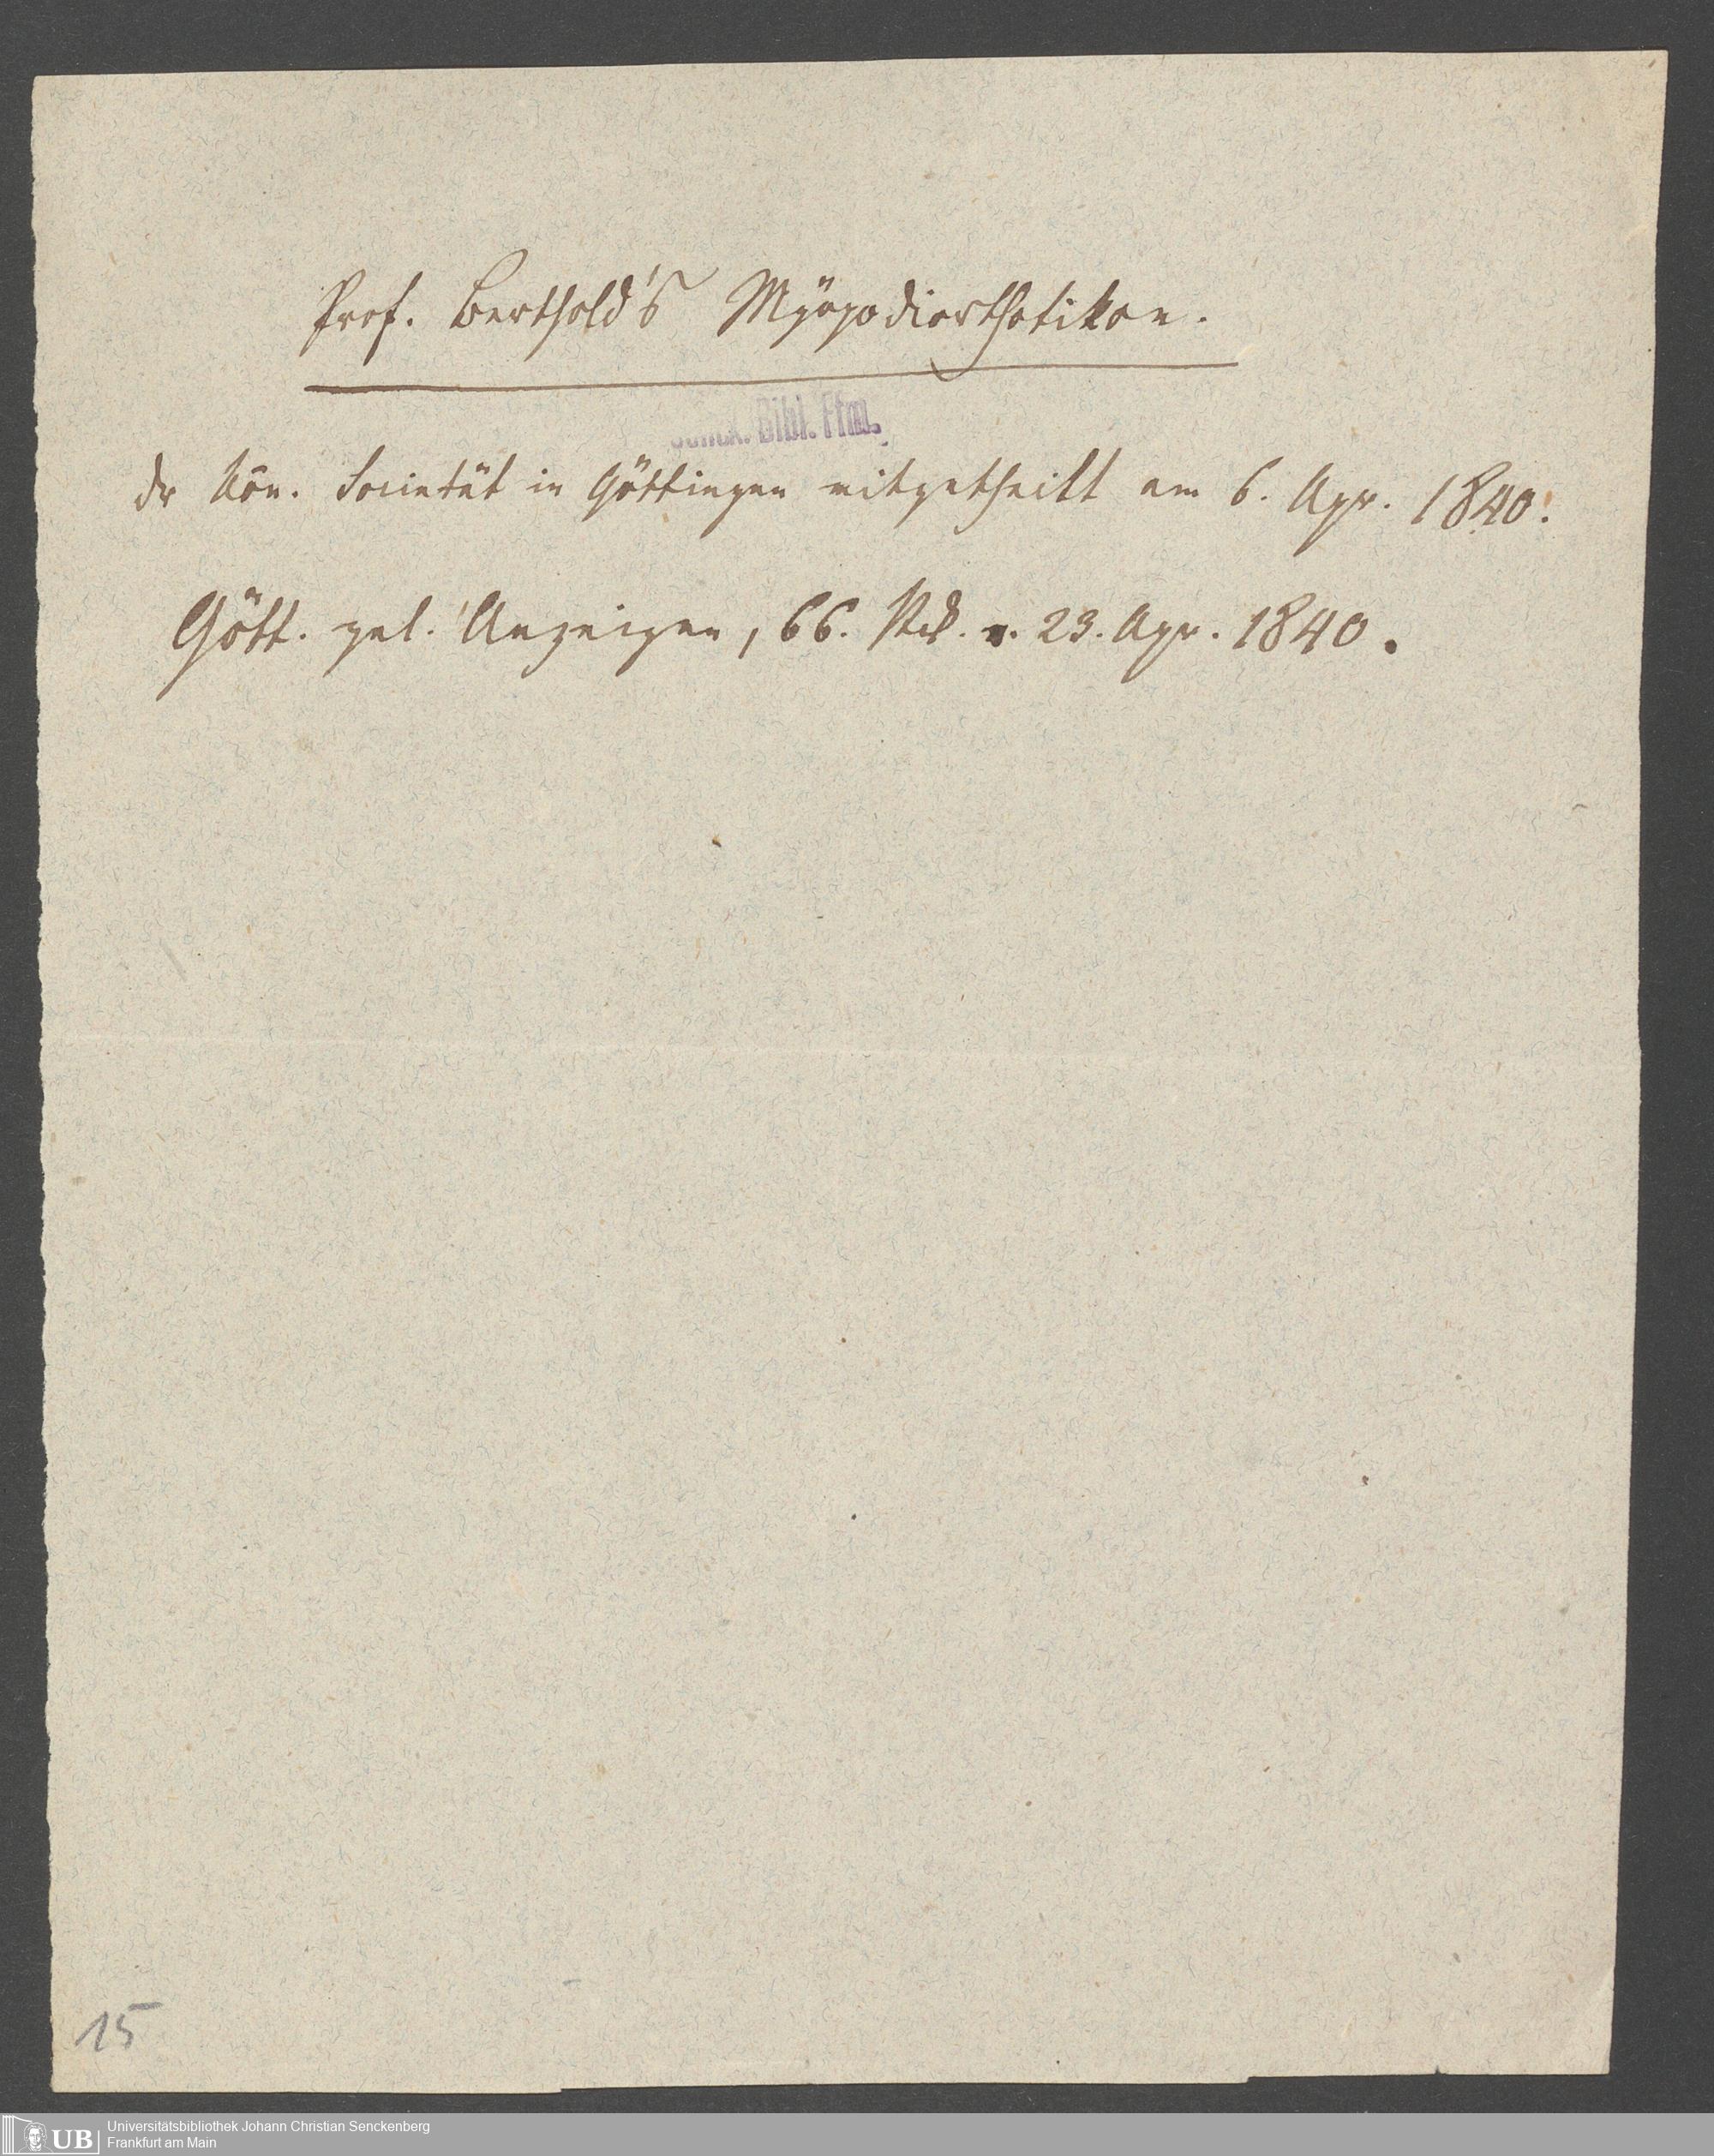 Prof. Berthold's Myopodiorthotikon.
Senck. Bibl. Ffm.
der Kön. Societät in Göttingen mitgetheilt am 6. Apr. 1840.
Gött. gel. Anzeigen, 66. Stck. v. 23. Apr. 1840.
15
UB Universitätsbibliothek Johann Christian Senckenberg
Frankfurt am Main